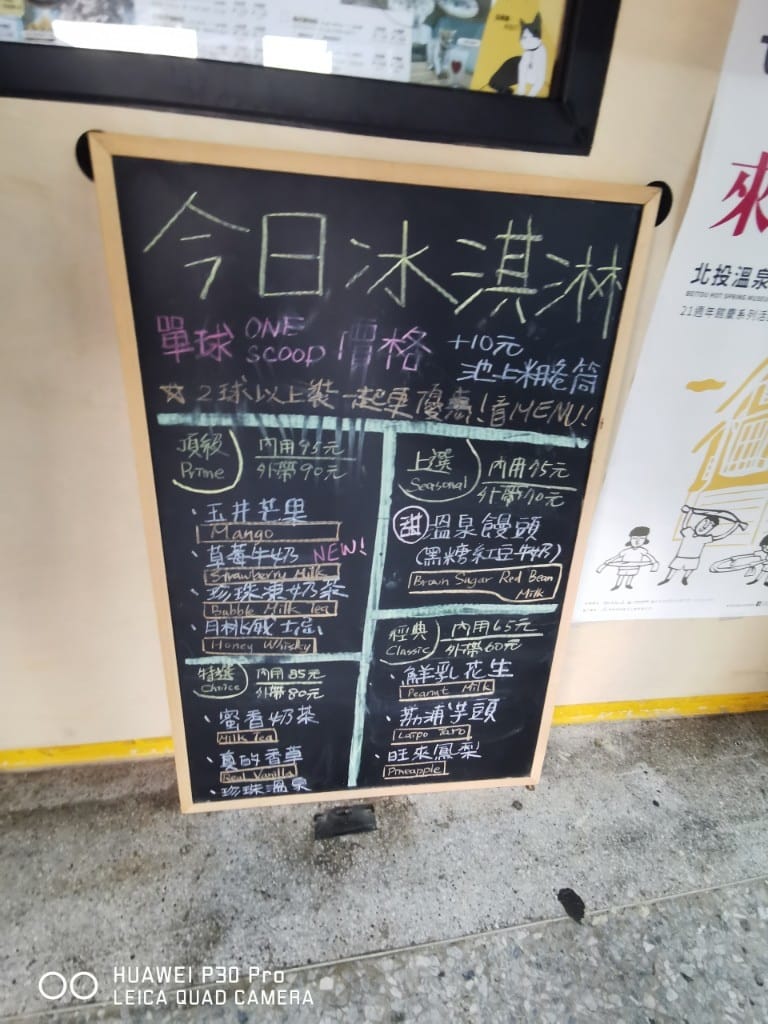 今日冰淇淋
單球 ONE SCOOP 價格
+10元
池上粗卷筒
☆2球以上裝一起更優惠!看MENU!
頂級 Prime
內用95元
外帶90元
·玉井芒果
Mango
·草莓牛奶 NEW!
Strawberry Milk
·珍珠凍奶茶
Bubble Milk Tea
·月桃威士忌
Honey Whisky
特選 Choice
內用85元
外帶80元
·蜜香奶茶
Milk Tea
·真的香草
Real Vanilla
·珍珠溫泉
上選 Seasonal
內用75元
外帶70元
甜 溫泉饅頭
(黑糖紅豆牛奶)
Brown Sugar Red Bean
Milk
經典 Classic
內用65元
外帶60元
·鮮乳花生
Peanut Milk
·荔浦芋頭
Larpo Taro
·旺來鳳梨
Pineapple
來
北投溫泉
BEITOU HOT SPRING MUSEU
21週年館慶系列活
HUAWEI P30 Pro
LEICA QUAD CAMERA